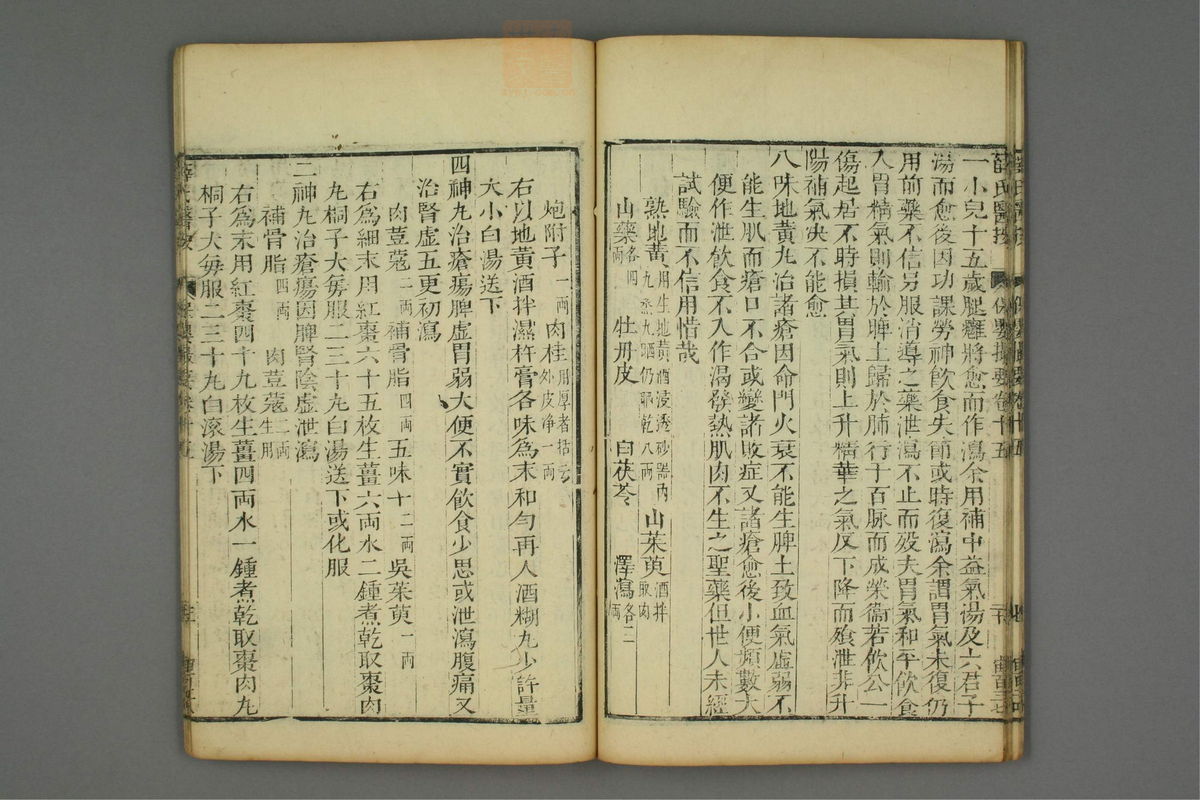 一小兒十五歲腿癰將愈而作瀉余用補中益氣湯及六君子
湯而愈後因功課勞神飮食失節或時復瀉余謂胃氣未復仍
用前藥不信另服消導之藥泄瀉不止而歿夫胃氣和平飮食
入胃精氣則輸於脾土歸於肺行于百脉而成榮衞若飮食一
傷起居不時損其胃氣則上升精華之氣反下降而飱泄非升
陽補氣决不能愈
八味地黃丸治諸瘡因命門火衰不能生脾土致血氣虛弱不
能生肌而瘡口不合或變諸敗症又諸瘡愈後小便頻數大
便作泄飮食不入作渴發熱肌肉不生之聖藥但世人未經
試驗而不信用惜哉
熟地黃用生地黃酒浸透砂器內九烝九晒仍耴乾八兩 山茱萸酒拌取肉
山藥各四兩 牡丹皮 白茯苓 澤瀉各三兩
炮附子一兩 肉桂用厚者括去外皮净一兩
右以地黃酒拌濕杵膏各味為末和勻再人酒糊丸少許量
大小白湯送下
四神丸治瘡瘍脾虛胃弱大便不實飮食少思或泄瀉腹痛又
治腎虛五更初瀉
肉荳蔻二兩 補骨脂四兩 五味十二兩 吳茱萸一兩
右為細末用紅棗六十五枚生薑六兩水二鍾煮乾取棗肉
丸桐子大每服二三十丸白湯送下或化服
二神丸治瘡瘍因脾腎陰虛泄瀉
補骨脂四兩 肉荳蔻二兩生用
右為末用紅棗四十九枚生薑四兩水一鍾煮乾取棗肉丸
桐子大每服二三十丸白滾湯下
薛氏醫按
保嬰撮要卷十五